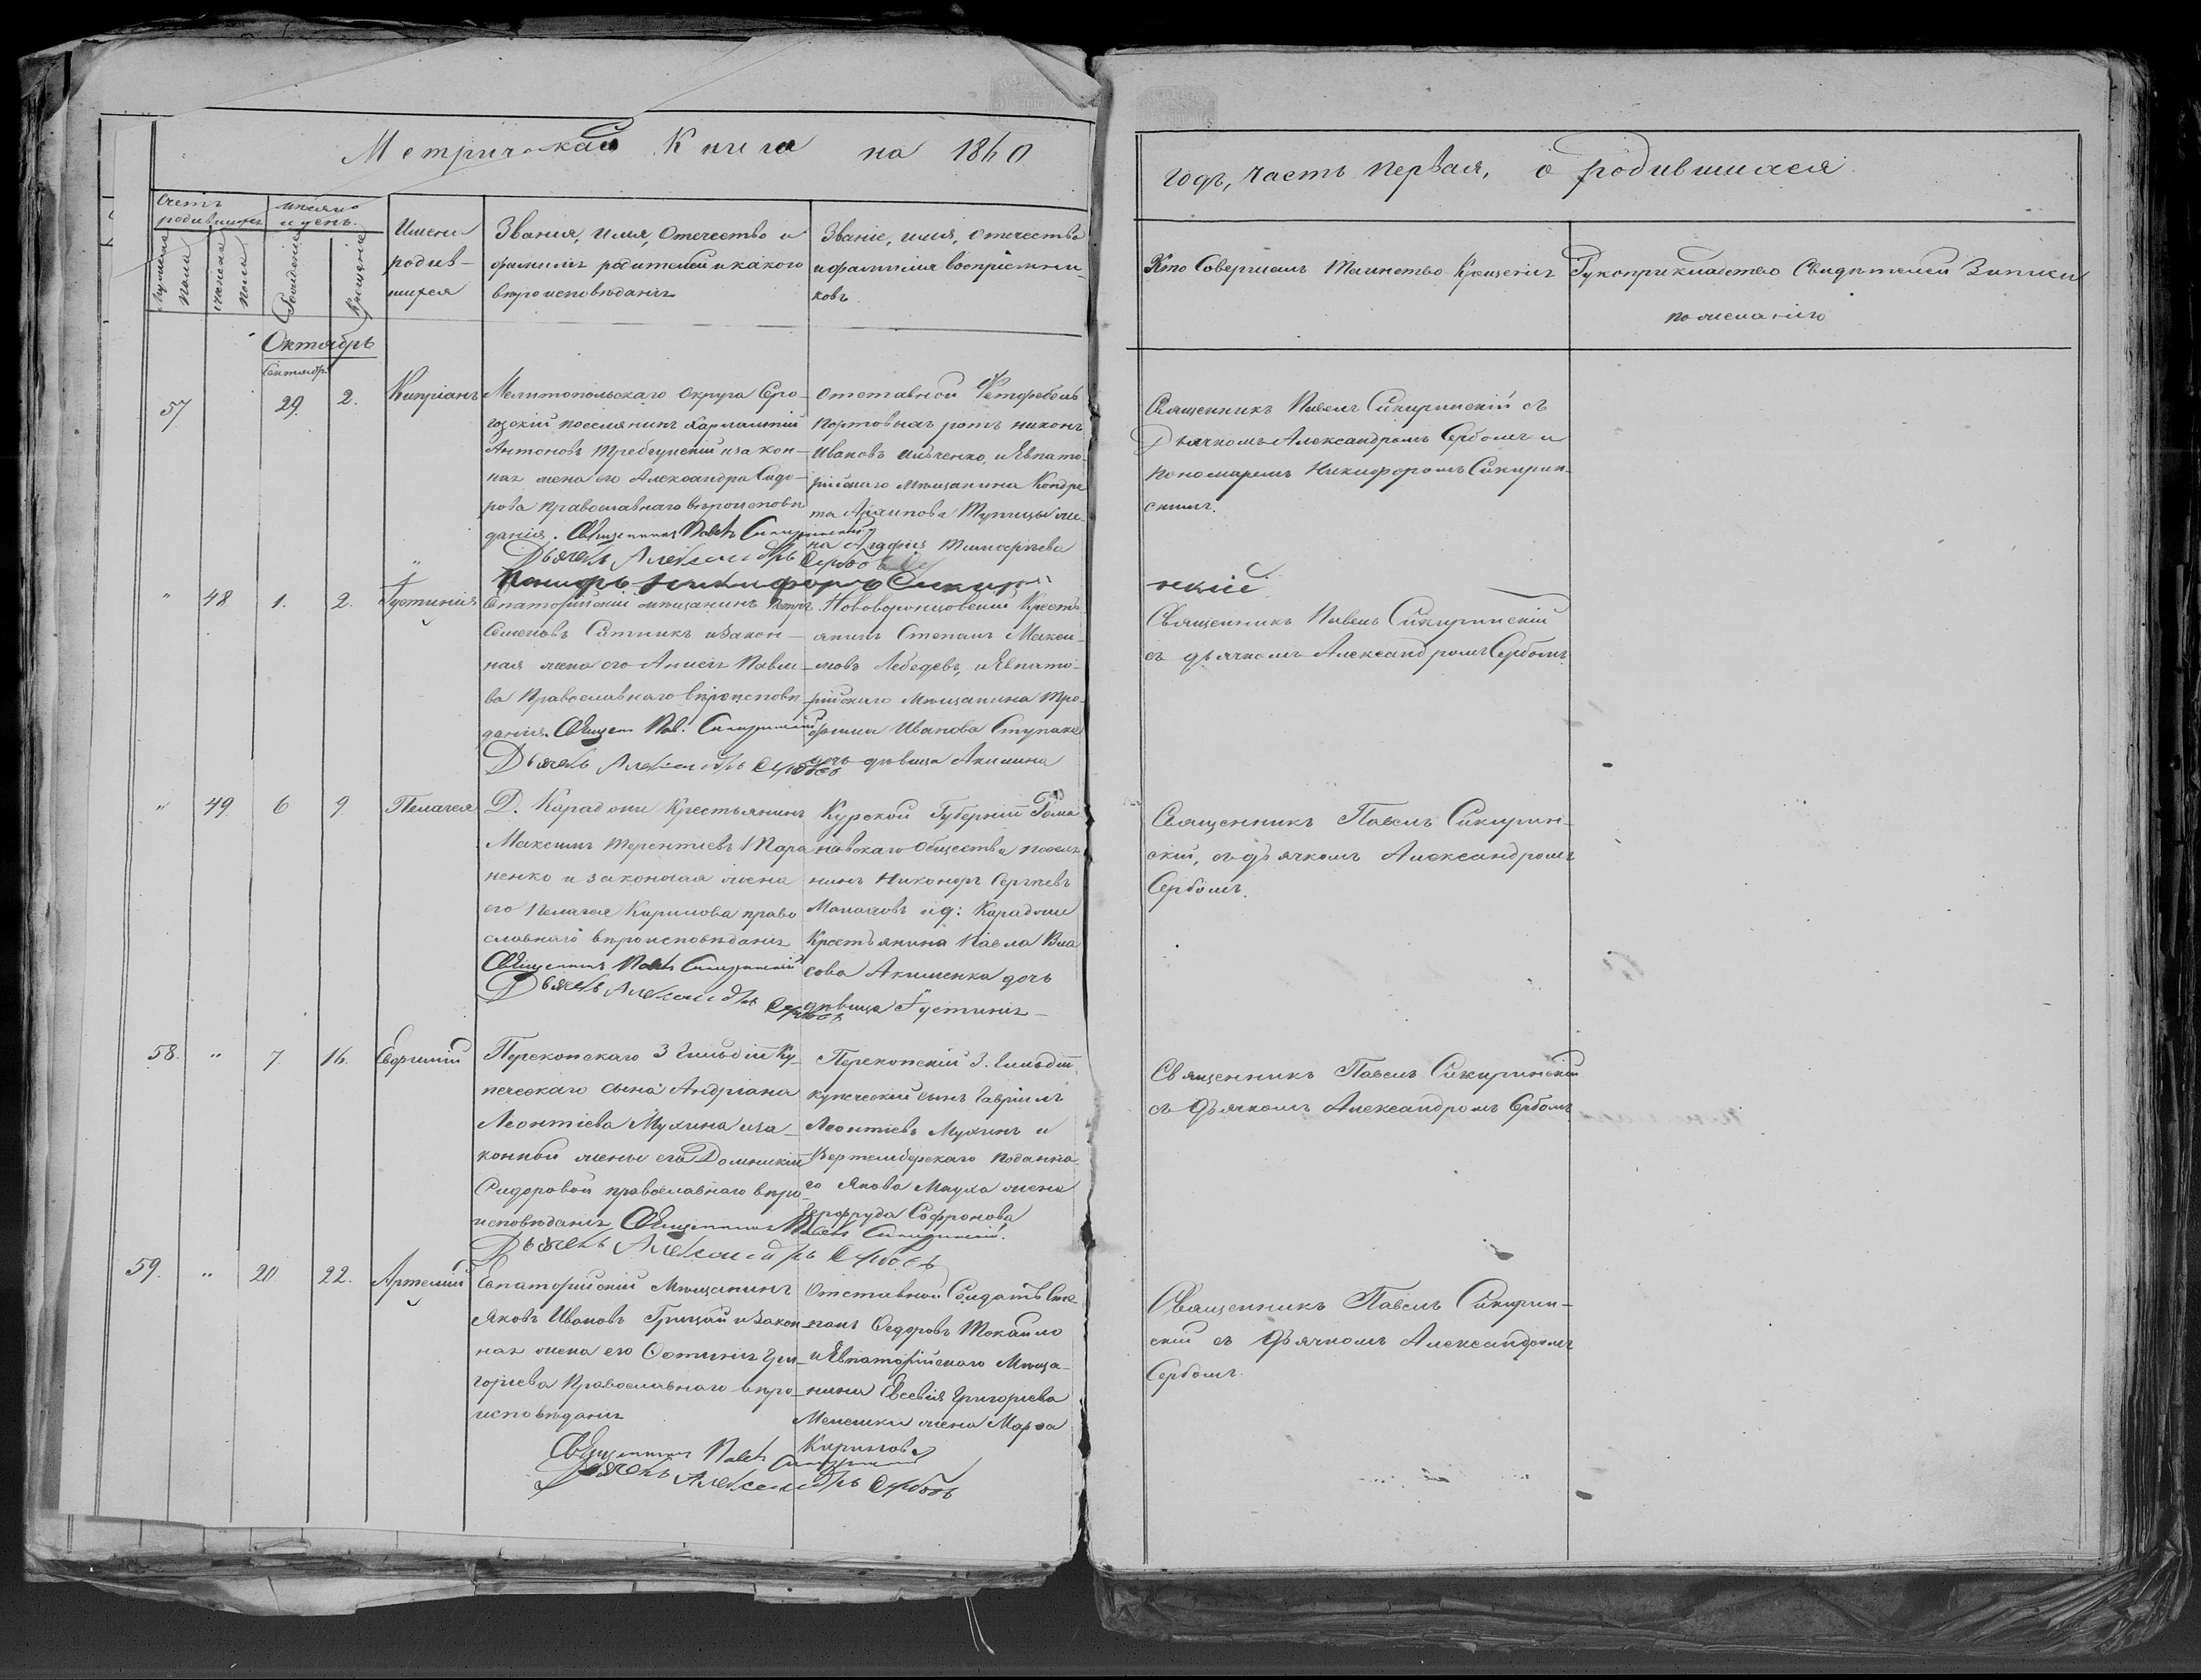 Метрическая Книга на 1860
годъ, часть первая, о родившихся
Счетъ родившихся
Мужеска пола
женска пола
мѣсяцъ и день
Рожденія
Крещенія
Имена родив-
шихся
Званія, имя, Отечество и
фамилія родителей и какого
вѣроисповѣданія
Званіе, имя, отечество
и фамилія воспріемни-
ковъ
Кто Совершалъ Таинство Крещенія
Рукоприкладство Свидѣтелей Записи
по желанію
Октябрь
Сентябр.
57
29. 2.
Кипріанъ
Мелитопольскаго округа Серо-
гозскій поселянинъ Харлампій
Антоновъ Требунскій и закон-
ная жена его Александра Сидо-
рова православнаго вѣроисповѣ
данія. Священникъ Павелъ Сикиринскій
Дьячекъ Александръ Сербовъ
Пономарь Никифоръ Сикирин
скій
Отставной Фетфебель
портовыхъ ротъ Никонъ
Ивановъ Ильченко, и Евпато-
рійскаго мѣщанина Кондра
та Архипова Тупицы же-
на Агафія Тимофѣева
Священникъ Павелъ Сикиринскій съ
Дьячкомъ Александромъ Сербомъ и
пономаремъ Никифоромъ Сикирин-
скимъ.
" 48 1. 2.
Іустинія
Евпаторійскій мѣщанинъ Петръ
Семеновъ Ситникъ и закон-
ная жена его Анисія Павло-
ва Православнаго вѣроисповѣ
данія. Священ. Пав. Сикиринскій
Дьячекъ Александръ Сербовъ
Нововоронцовскій Кресть-
янинъ Степанъ Макси-
мовъ Лебедевъ, и Евпато-
рійскаго мѣщанина Тро-
фима Иванова Ступака
дочь дѣвица Акилина
Священникъ Павелъ Сикиринскій
съ дьячкомъ Александромъ Сербомъ.
" 49. 6 9.
Пелагея
Д. Карадоши Крестьянинъ
Максимъ Терентіевъ Тара
ненко и законная жена
его Пелагея Кирилова право
славнаго вѣроисповѣданія
Священникъ Павелъ Сикиринскій
Дьячекъ Александръ Сербовъ
Курской Губерніи Рома
новскаго Общества поселя
нинъ Никоноръ Сергѣевъ
и д: Карадоши
Крестьянина Павла Вла
сова Акименка дочь
дѣвица Іустинія
Священникъ Павелъ Сикирин-
скій, съ дьячкомъ Александромъ
Сербомъ.
58. " 7 16.
Евфимій
Перекопскаго 3 Гильдіи Ку-
печескаго сына Андріана
Леонтіева Мухина и за-
конной жены его Домникіи
Сидоровой православнаго вѣро
исповѣданія Священникъ Павелъ Сикиринскій.
Дьячекъ Александръ Сербовъ
Перекопскій 3. Гильдіи
купеческій сынъ Гавріилъ
Леонтіевъ Мухинъ и
Вертембергскаго подданна-
го Якова Мауха жена
Софронова
Священникъ Павелъ Сикиринскій
съ Дьячкомъ Александромъ Сербомъ
59. " 20 22.
Артемій
Евпаторійскій Мѣщанинъ
Яковъ Ивановъ Грицай и закон
ная жена его Гри-
горіева Православнаго вѣро
исповѣданія
Священникъ Павелъ Сикиринскій
Дьячекъ Александръ Сербовъ
Отставной Солдатъ Сте-
панъ Федоровъ Токайло
и Евпаторійскаго Мѣща-
нина Евсевія Григорьева
Мелешки жена Марѳа
Кирилова
Священникъ Павелъ Сикирин-
скій съ Дьячкомъ Александромъ
Сербомъ.